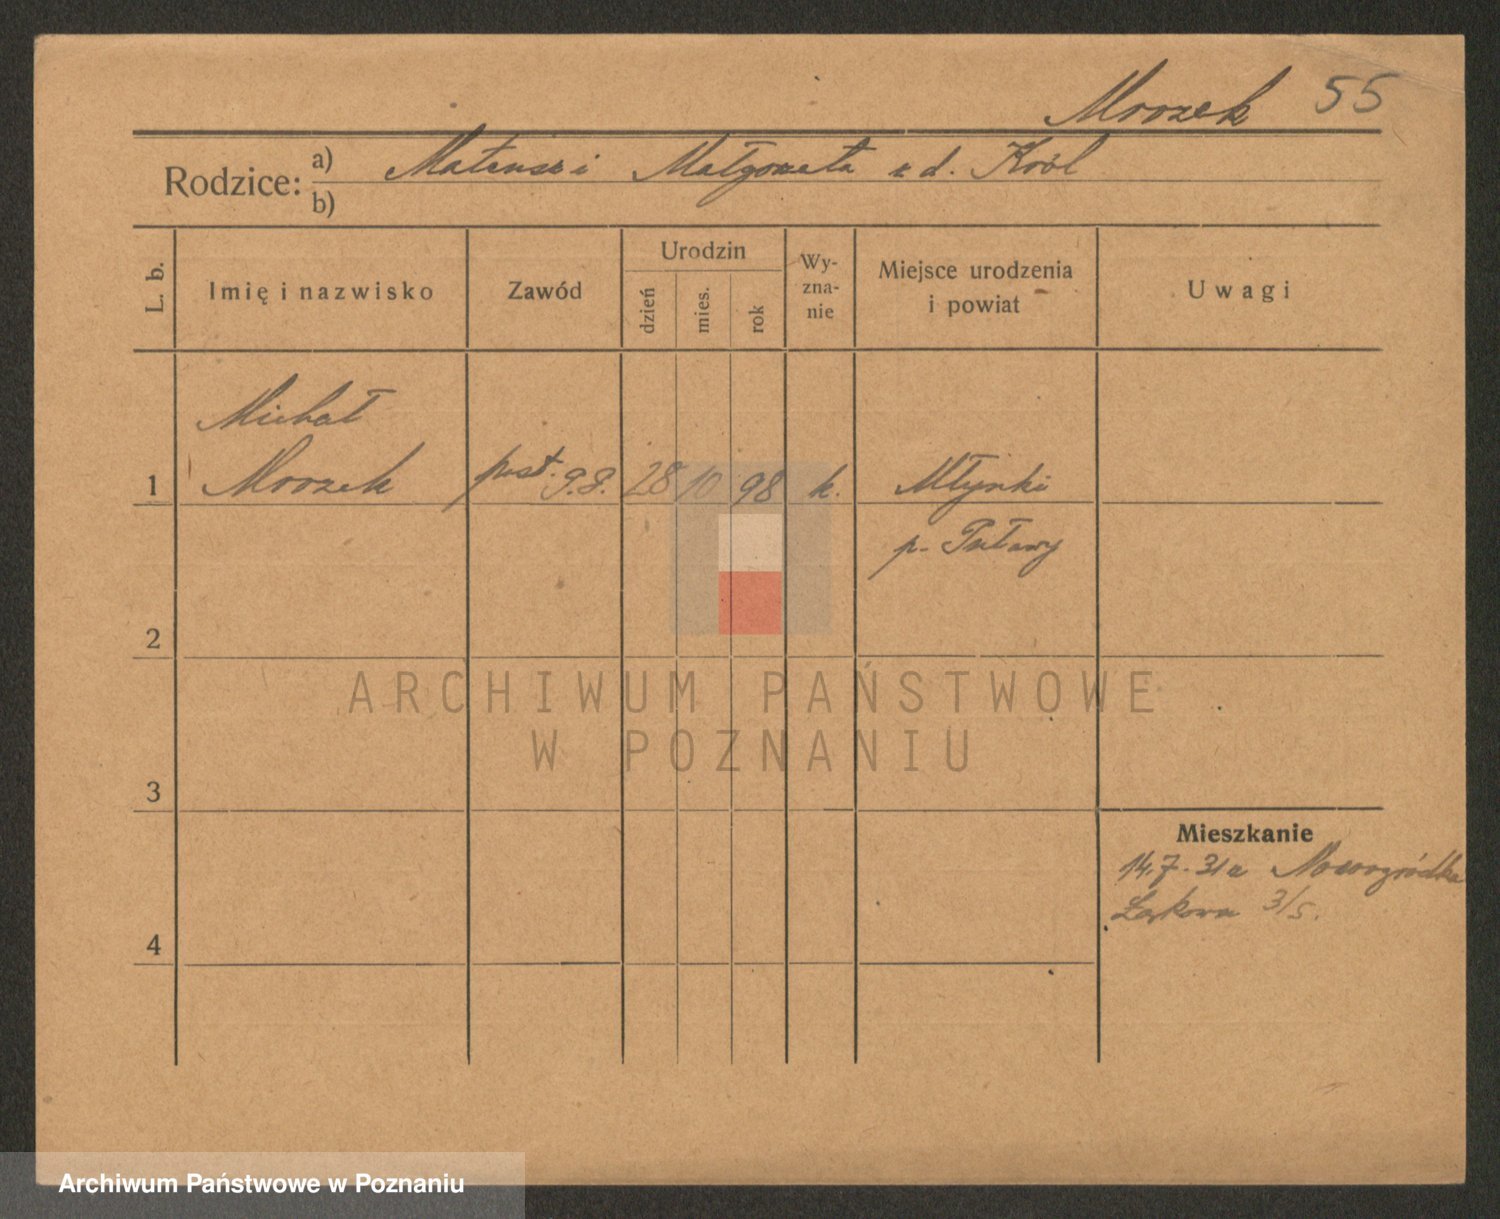 Mrozek 55
Rodzice: a) Mateusz i Małgorzata z d. Król
b)
L. b.
Imię i nazwisko
Zawód
Urodzin
dzień
mies.
rok
Wy-
zna-
nie
Miejsce urodzenia
i powiat
Uwagi
Michał
1 Mrozek post. 28 10 98 k. Młynki
p. Puławy
2
ARCHIWUM PAŃSTWOWE
W POZNANIU
3
Mieszkanie
14.7.31 Nowogródka
3/5.
4
Archiwum Państwowe w Poznaniu